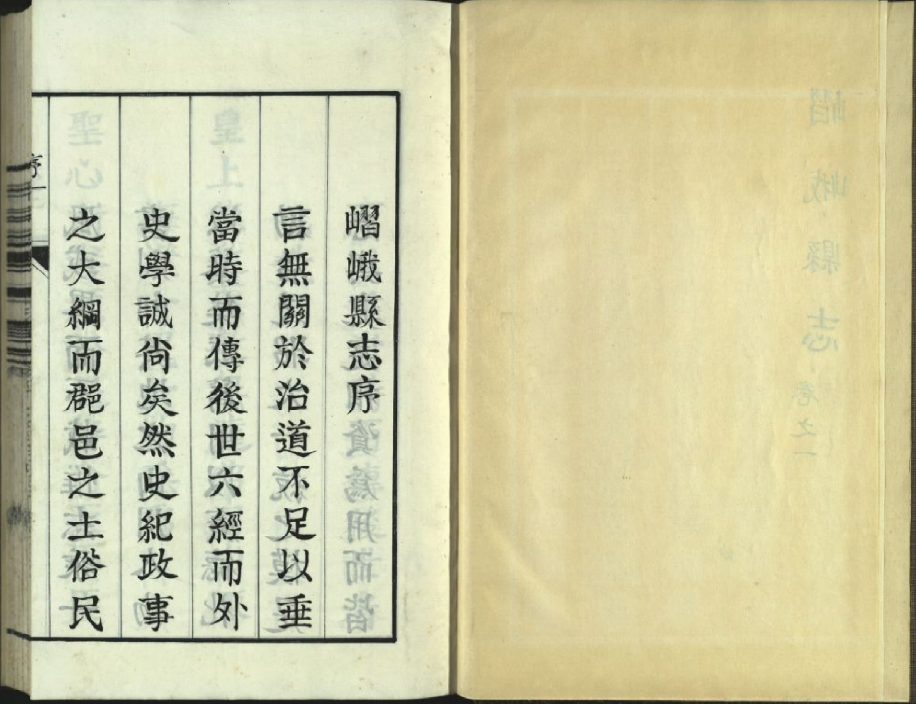 嶍峨縣志序
言無關於治道不足以垂
當時而傳後世六經而外
史學誠尙矣然史紀政事
之大綱而郡邑之土俗民
序
嶍峨縣志 卷之一